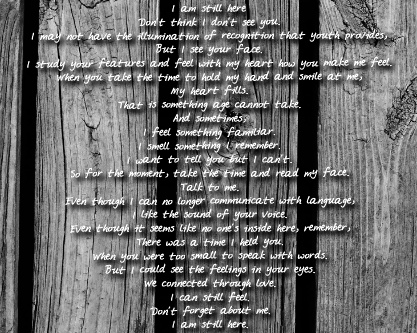 I am still here
Don't think I don't see you.
I may not have the illumination of recognition that youth provides,
But I see your face.
I study your features and feel with my heart how you make me feel.
When you take the time to hold my hand and smile at me,
My heart fills.
That is something age cannot take.
And sometimes,
I feel something familiar.
I smell something I remember.
I want to tell you but I can't.
So for the moment, take the time and read my face.
Talk to me.
Even though I can no longer communicate with language,
I like the sound of your voice.
Even though it seems like no one's inside here, remember,
There was a time I held you.
When you were too small to speak with words.
But I could see the feelings in your eyes.
We connected through love.
I can still feel.
Don't forget about me.
I am still here.